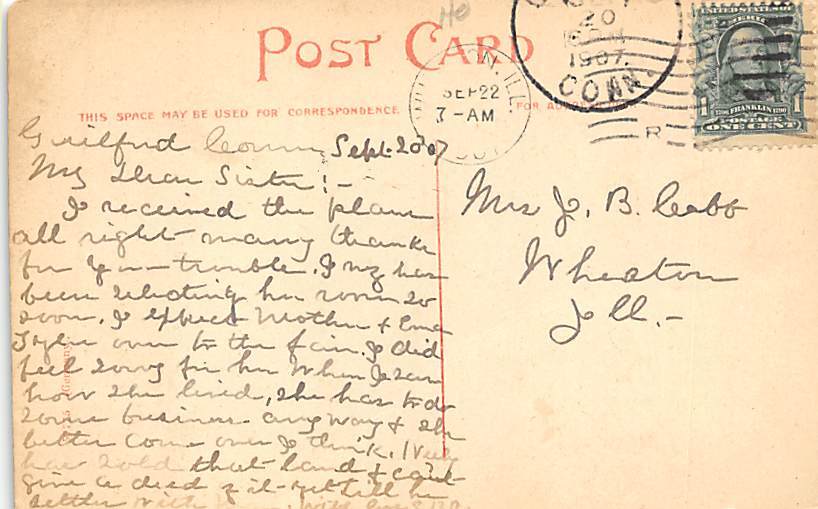 POST CARD
THIS SPACE MAY BE USED FOR CORRESPONDENCE.
FOR
20
1907
CONN.
ILL.
SEP 22
7-AM
UNITED STATES OF AMERICA
1 FRANKLIN 1
POSTAGE
ONE CENT
R
Guilford Conn Sept. 20 07
My Dear Sister:-
I received the plans
all right many thanks
for your trouble. Inez has
been selecting her room so
soon. I expect Mother & Ema
Tyler over to the fair. I did
feel sorry for her when I saw
how she lived, she has to do
some business anyway & she
better come over I think.
have sold that land & can't
give a deed of it yet till he
settles with
Mrs J. B. Cobb
Wheaton
Ill.-
Germany